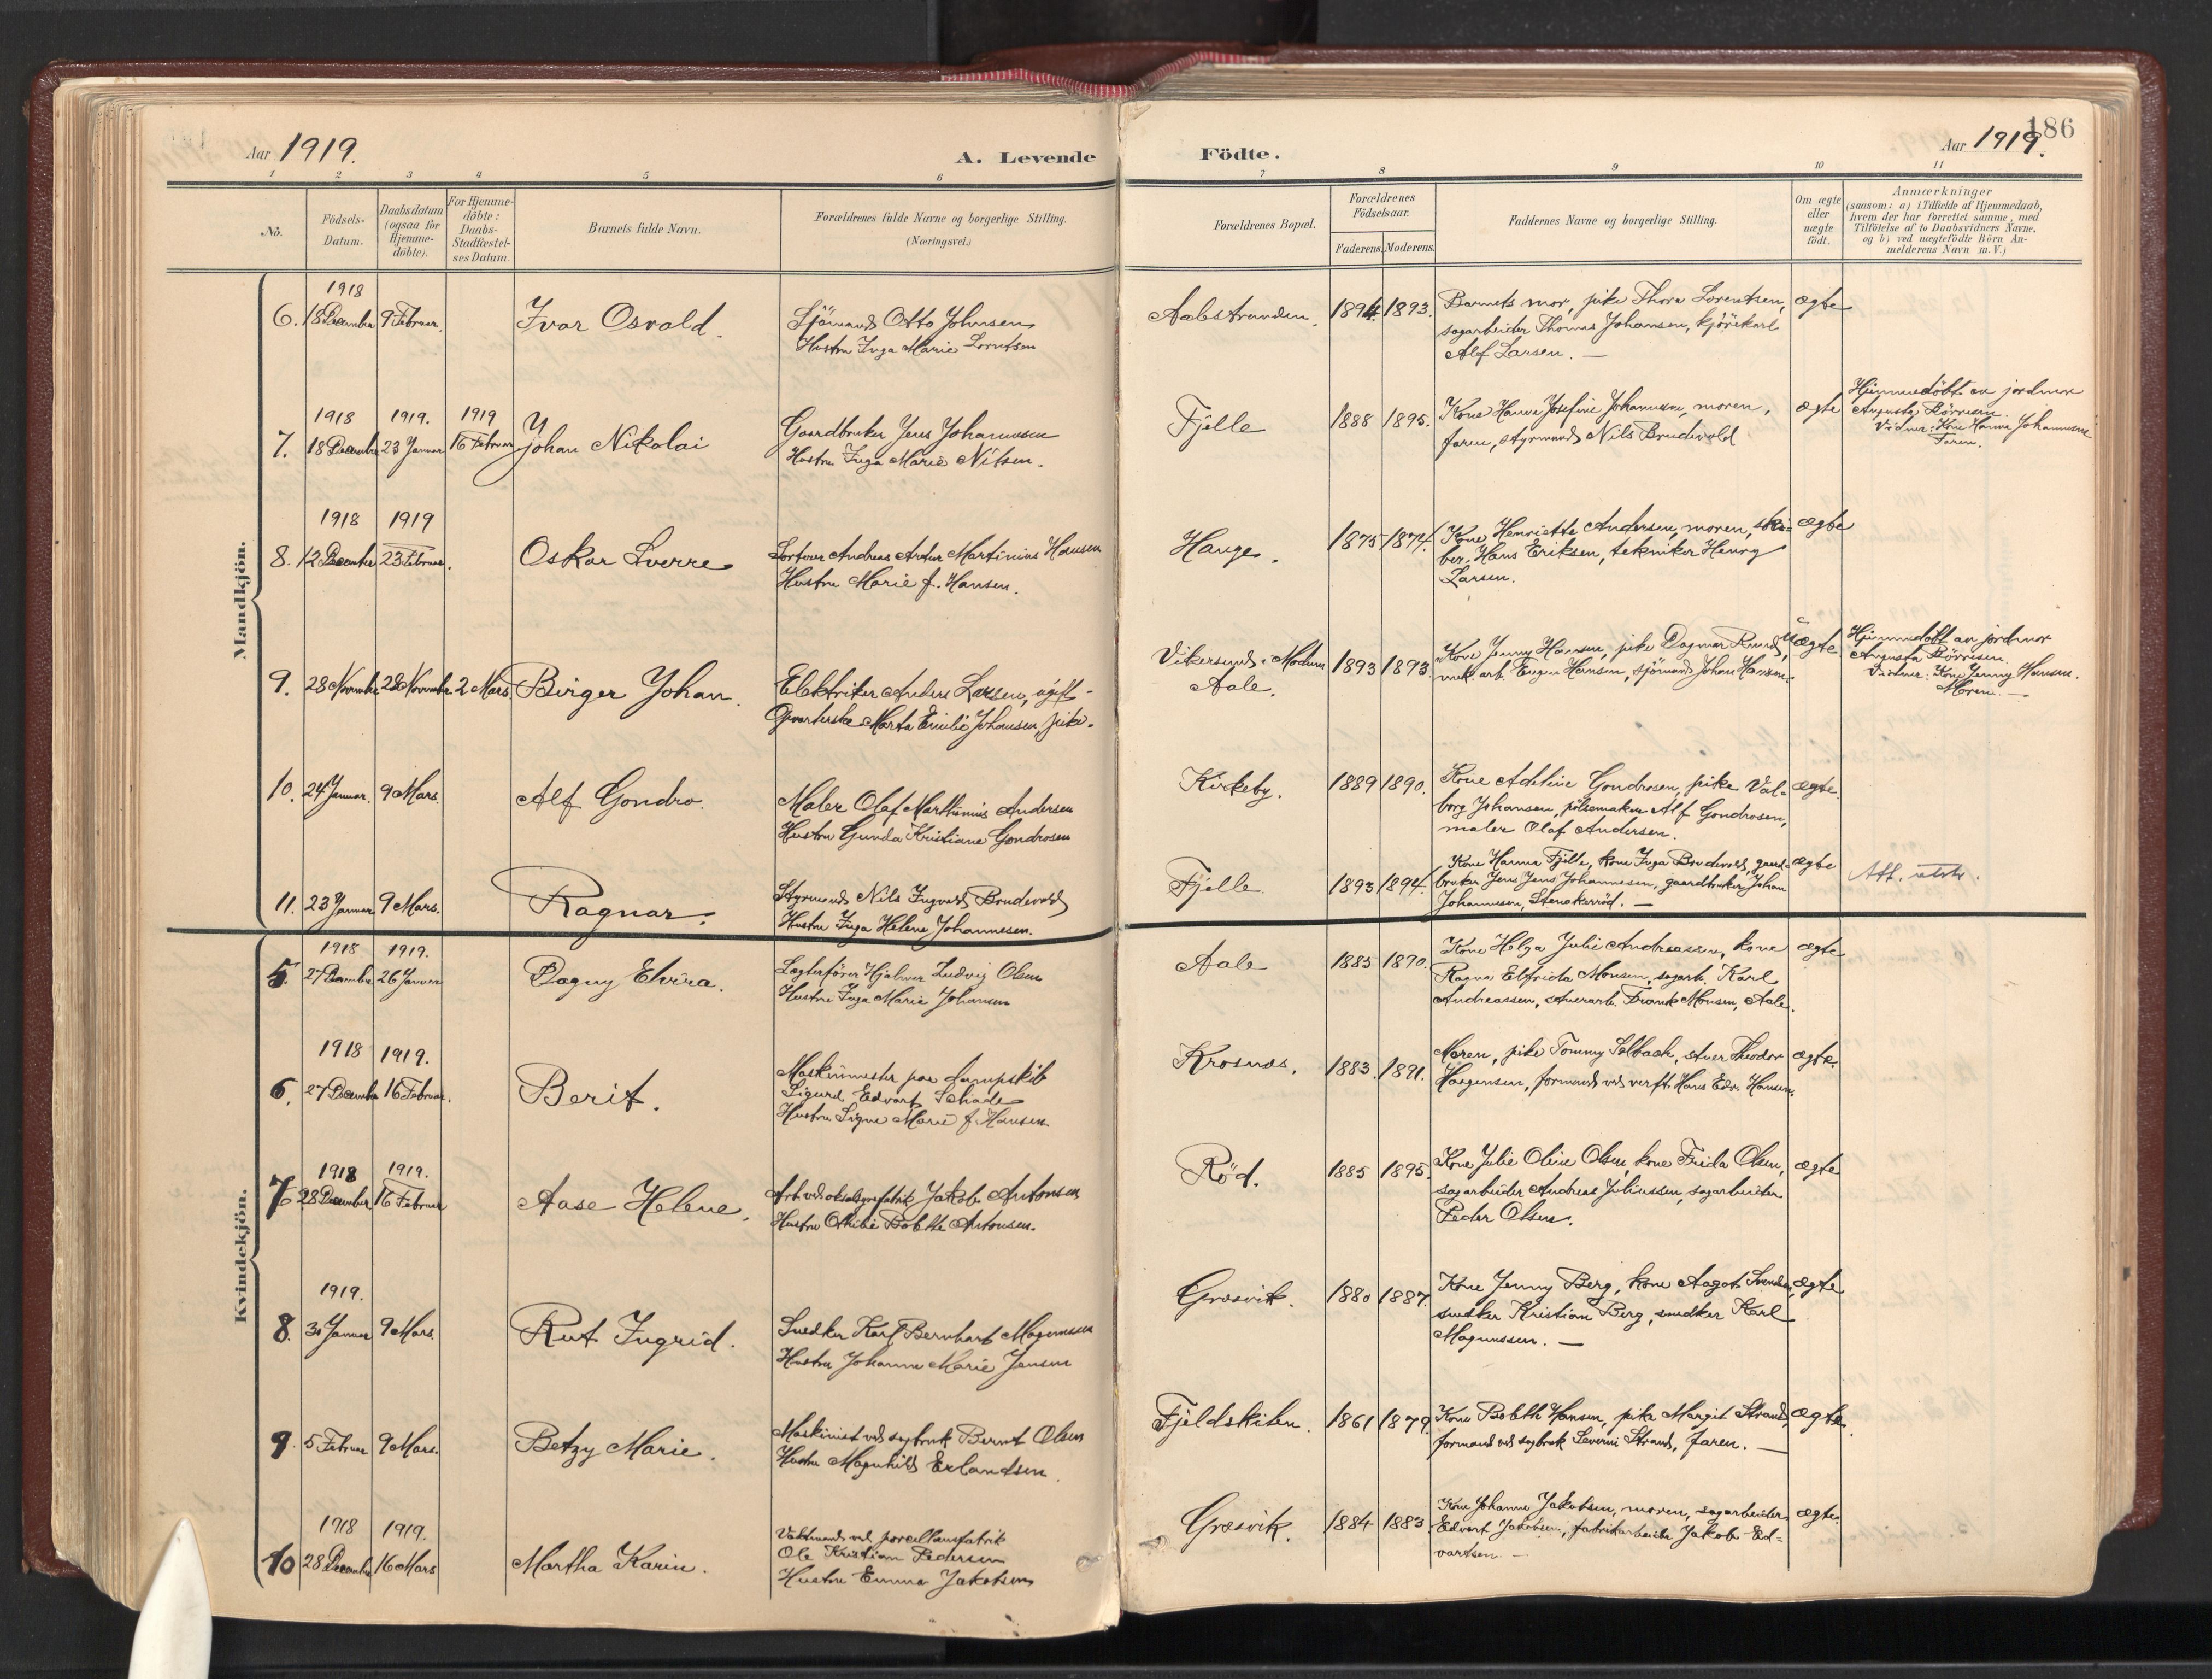 Aar 1919.
A. Levende
Födte.
186
Aar 1919.
1 2 3 4 5 6 7 8 9 10 11
Nö.
Födsels-
Datum.
Daabsdatum
(ogsaa for
Hjemme-
döbte).
For Hjemme-
döbte:
Daabs-
Stadfæstel-
ses Datum.
Barnets fulde Navn.
Forældrenes fulde Navne og borgerlige Stilling.
(Næringsvei.)
Forældrenes Bopæl.
Forældrenes
Födselsaar.
Faderens. Moderens.
Faddernes Navne og borgerlige Stilling.
Om ægte
eller
uægte
födt.
Anmærkninger
(saasom: a) i Tilfælde af Hjemmedaab,
hvem der har forrettet samme, med
Tilföielse af to Daabsvidners Navne,
og b) ved uægtefödte Börn An-
melderens Navn m. V.)
Mandkjön.
1918
6. 18 December 9 Februar.
Ivar Osvald.
Sjömand Otto Johnsen
Hustru Inga Marie Lorentsen
Aalestranden.
1894. 1893.
Barnets mor, pike Thora Lorentsen,
sagarbeider Thomas Johansen, kjörekarl
Alf Larsen. —
ægte
1918 1919. 1919
7. 18 December 23 Januar 16 Februar
Johan Nikolai
Gaardbruker Jens Johannesen
Hustru Inga Marie Nilsen.
Fjelle
1888 1895.
Kone Hanna Josefine Johannesen, moren,
faren, styrmand Nils Brudevold
ægte
Hjemmedöbt av jordmor
Augusta Börresen.
Vidner: Kone Hanna Johannesen
Faren.
1918 1919
8. 12 December 23 Februar.
Oskar Sverre
Andreas Artur Martinius Hansen
Hustru Marie f. Hansen.
Hauge.
1875 1874.
Kone Henriette Andersen, moren, skri-
ber, Hans Eriksen, tekniker Henry
Larsen.
ægte
9. 28 November 28 November 2 Mars
Birger Johan.
Elektriker Anders Larsen, ugift -
Marta Emilie Johansen, pike.
Vikersund i Modum
Aale.
1893 1893.
Kone Jenny Hansen, pike Dagmar
mek. arb. Eugen Hansen, sjömand Johan Hansen.
uægte
Hjemmedöbt av jordmor
Augusta Börresen.
Vidner: Kone Jenny Hansen.
Moren. —
10. 24 Januar. 9 Mars.
Alf Gondro.
Maler Olaf Marthinius Andersen
Hustru Gunda Kristiane Gondrosen
Kirkeby.
1889 1890.
Kone Adeline Gondrosen, pike Val-
borg Johansen, pölsemaker Alf Gondrosen,
maler Olaf Andersen.
ægte.
11. 23 Januar 9 Mars.
Ragnar.
Styrmand Nils Ingvard Brudevold
Hustru Inga Helene Johannesen.
Fjelle
1893 1894.
Kone Hanna Fjelle, kone Inga Brudevold, gaard-
bruker Jens Johannesen, gaardbruker Johan
Johannesen, Stenakerröd. —
ægte
Att. utst.
Kvindekjön.
1918 1919.
5. 27 December 26 Januar
Dagny Elvira.
Lægterförer Hjalmar Ludvig Olsen
Hustru Inga Marie Johansen
Aale
1885 1890.
Kone Helga Julie Andreassen, kone
Ragna Elfrida Monsen, sagarb. Karl
Andreassen, stuerarb. Frank Monsen, Aale.
ægte
1918 1919.
6. 27 December 16 Februar.
Berit.
Maskinmester paa dampskib
Sigurd Edvart Schade
Hustru Signe Marie f. Hansen.
Krosnæs.
1883. 1891.
Moren, pike Tommy Solbach, stuer Theodor
Haagensen, formand ved verft Hans Edv. Hansen.
ægte.
1918 1919.
7 28 December 16 Februar
Aase Helene.
Arb. ved oksalsyrefabrik Jakob Antonsen
Hustru Othilie Bolette Antonsen.
Röd.
1885 1895.
Kone Julie Oline Olsen, kone Frida Olsen,
sagarbeider Andreas Juliussen, sagarbeider
Peder Olsen.
ægte
1919.
8. 30 Januar 9 Mars.
Rut Ingrid.
Snedker Karl Bernhart Magnussen
Hustru Johanne Marie Jensen
Græsvik.
1880 1887.
Kone Jenny Berg, kone Aagot Svendsen,
snedker Kristian Berg, snedker Karl
Magnussen. —
ægte
9. 5 Februar 9 Mars.
Betzy Marie.
Maskinist ved sagbruk Bernt Olsen
Hustru Magnhild Erlandsen.
Fjeldskilen.
1861 1879.
Kone Bolette Hansen, pike Margit Strand,
formand ved sagbruk Severin Strand, faren. —
ægte.
1918 1919.
10 28 December 16 Mars
Martha Karin.
Vaktmand ved porcellænsfabrik
Ole Kristian Pedersen
Hustru Emma Jakobsen
Græsvik.
1884 1883.
Kone Johanne Jakobsen, moren, sagarbeider
Edvart Jakobsen, fabrikarbeider Jakob Ed-
vartsen. —
ægte.